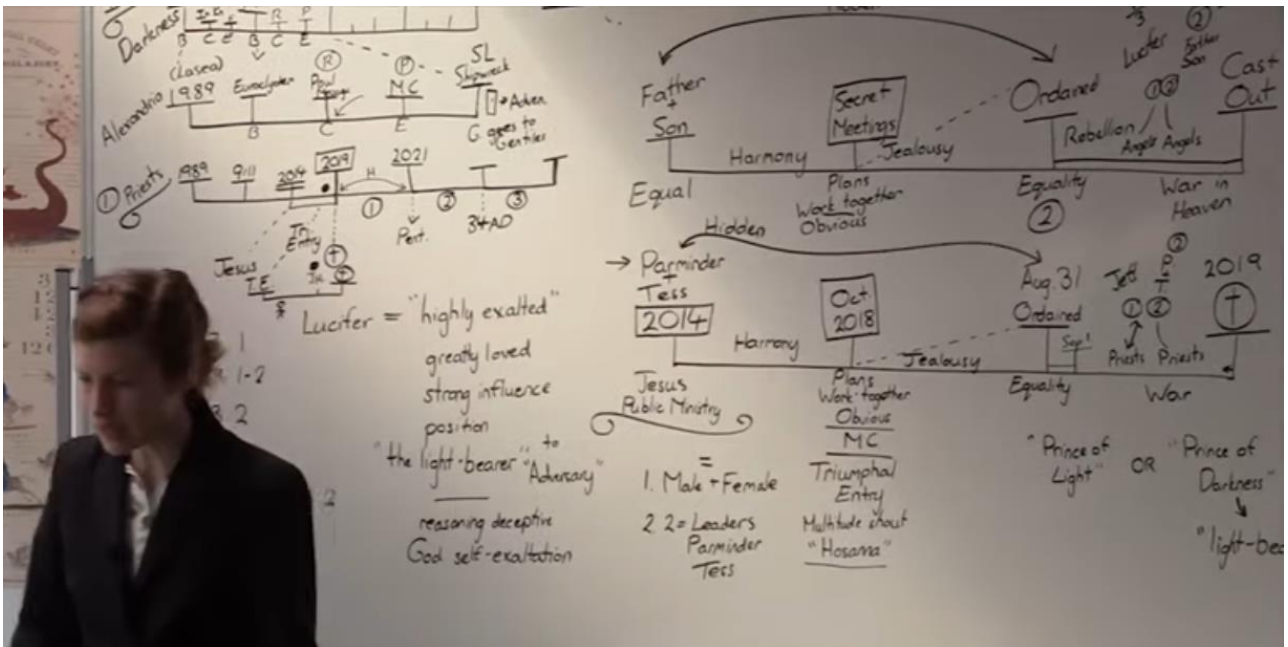 Darkness
B C E B C E
R P
(Lasea)
Alexandria 1989 Euroclydon Paul MC SL Shipwreck
R P
→ Adven.
B C E G. goes to
Gentiles
① Priests 1989 9/11 2014 2019 2021
H
① ② ③
Tri.
Entry
Pent. 34AD
Jesus
T.E
Lucifer = "highly exalted"
greatly loved
strong influence
position
"the light-bearer" to "Adversary"
reasoning deceptive
God self-exaltation
1
1-2
2
Father
+
Son
Secret
Meetings
Ordained
Lucifer
②
Father
Son
① ②
Cast
Out
Harmony Jealousy Rebellion Angels Angels
Equal
Plans
Work together
Obvious
Equality
②
War in
Heaven
Hidden
→ Parminder
+
Tess
2014
Oct.
2018
Aug. 31
Ordained
Sep 1
Jeff
①
②
P
T
②
2019
Harmony Jealousy Priests Priests
Jesus
Public Ministry
Plans
Work together
Obvious
MC
Triumphal
Entry
Multitude shout
"Hosanna"
Equality War
=
1. Male + Female
2. 2 = Leaders
Parminder
Tess
"Prince of
Light" OR "Prince of
Darkness"
"light-bea